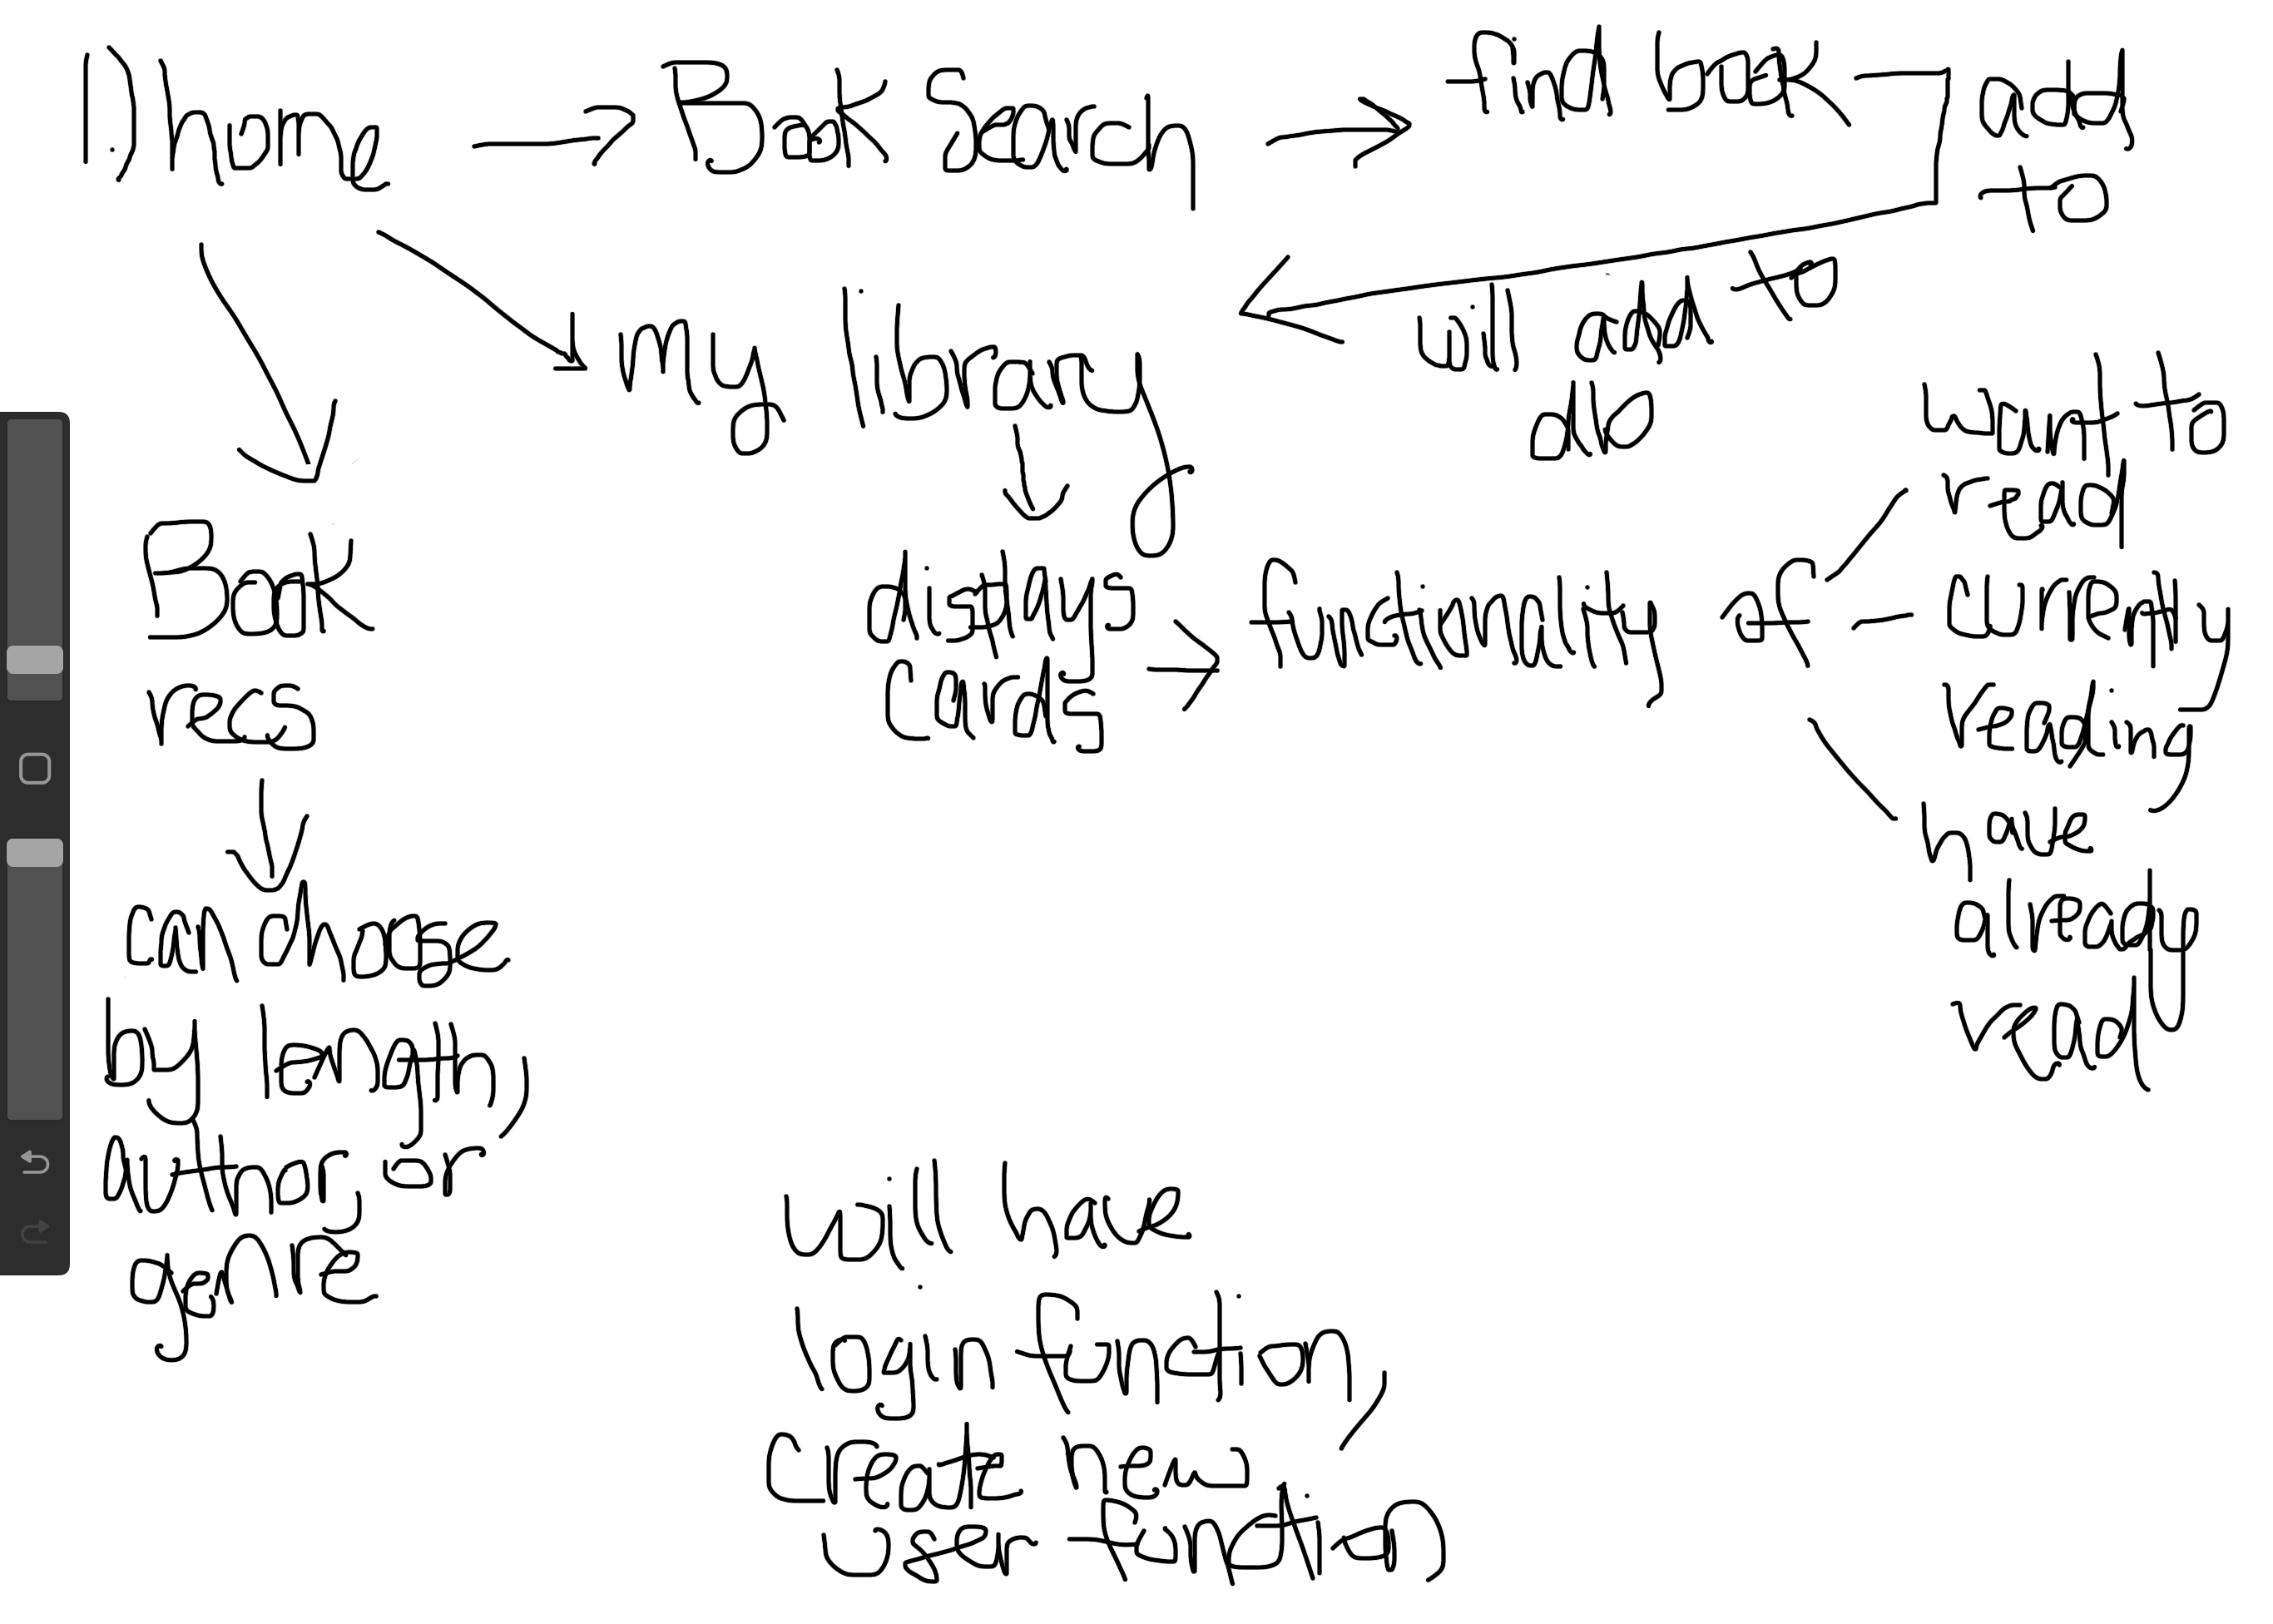 1.) home
Book Search
find book
add
to
my library
will add to
do
want to
read
displays
cards
functionality of
currently
reading
have
already
read
Book
recs
can choose
by length,
author, or
genre
will have
login function,
create new
user function